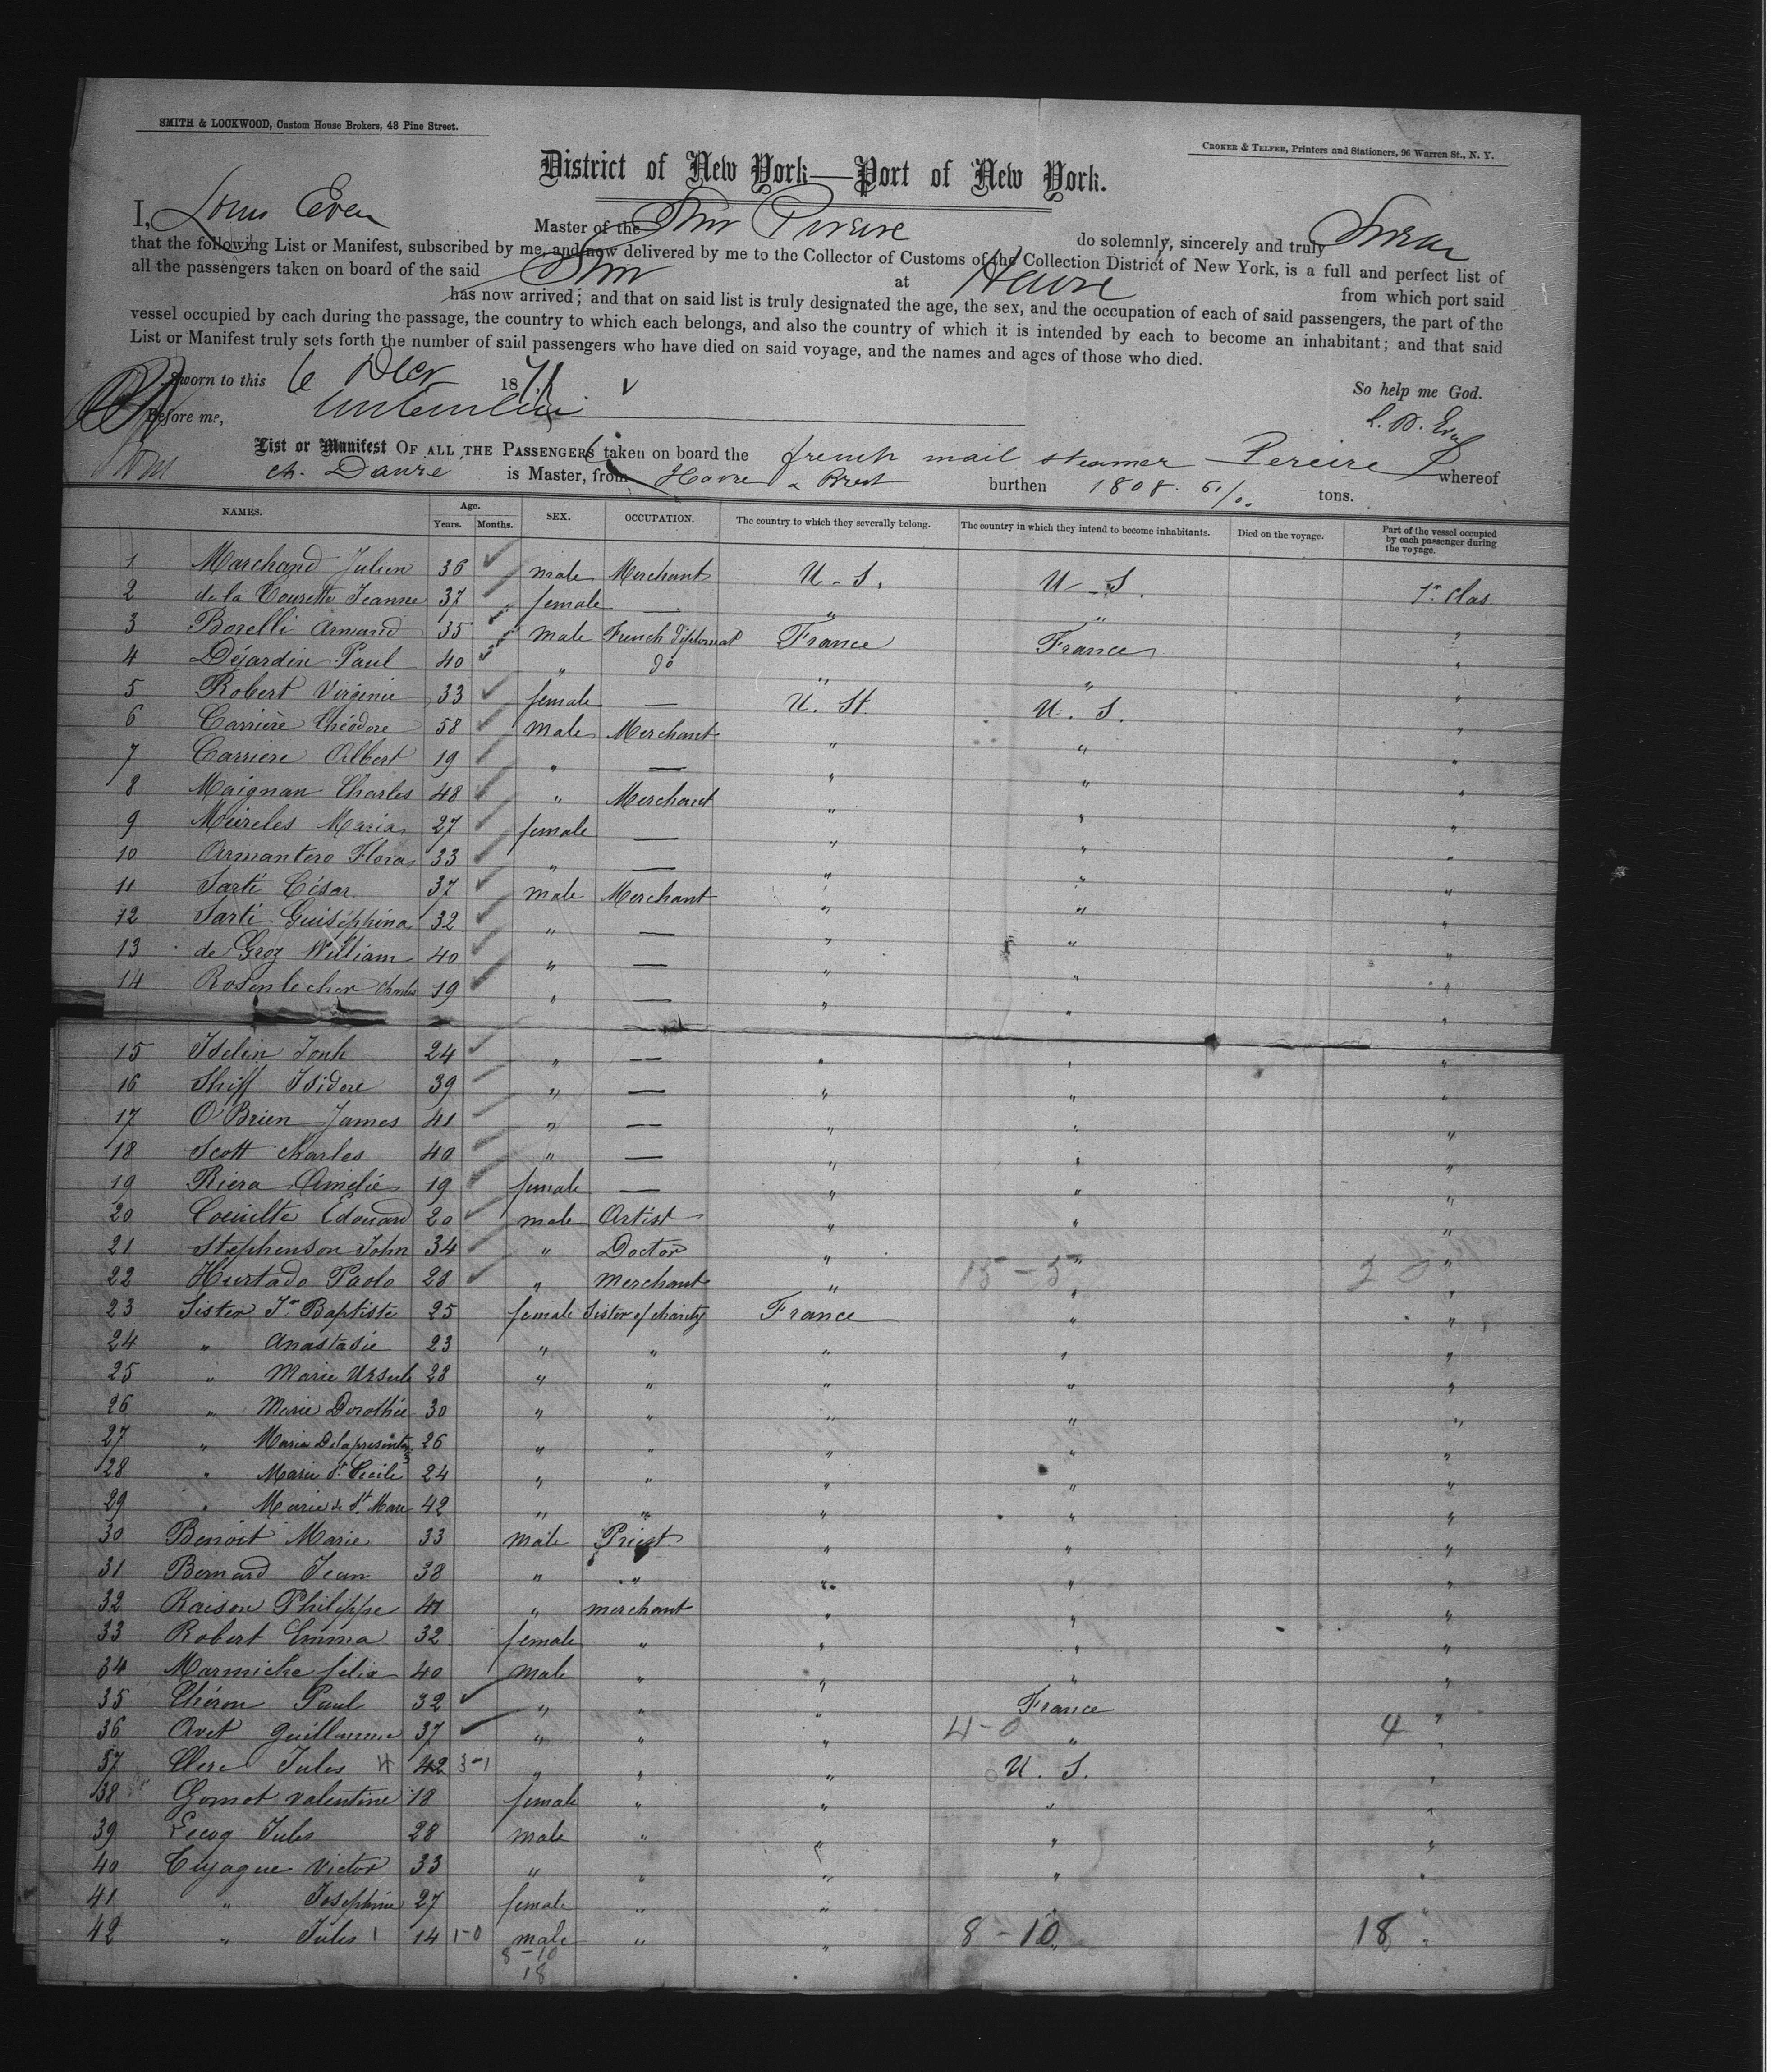 SMITH & LOCKWOOD, Custom House Brokers, 48 Pine Street.
CROKER & TELFER, Printers and Stationers, 96 Warren St., N. Y.
District of New York—Port of New York.
I, Louis Even Master of the Stmr Pereire do solemnly, sincerely and truly Swear
that the following List or Manifest, subscribed by me, and now delivered by me to the Collector of Customs of the Collection District of New York, is a full and perfect list of
all the passengers taken on board of the said Stmr at Havre from which port said
has now arrived; and that on said list is truly designated the age, the sex, and the occupation of each of said passengers, the part of the
vessel occupied by each during the passage, the country to which each belongs, and also the country of which it is intended by each to become an inhabitant; and that said
List or Manifest truly sets forth the number of said passengers who have died on said voyage, and the names and ages of those who died.
Sworn to this 6 Decr 1871 So help me God.
Before me,
List or Manifest OF ALL THE PASSENGERS taken on board the french mail steamer Pereire whereof
ch. Daure is Master, from Havre & Brest burthen 1808. 61/00 tons.
NAMES. Age. Years. Months. SEX. OCCUPATION. The country to which they severally belong. The country in which they intend to become inhabitants. Died on the voyage. Part of the vessel occupied by each passenger during the voyage.
1 Marchand Julien 36 male Merchant U. S. U. S. 1r. Clas.
2 de la Tourette Jeanne 37 female — " " "
3 Borelli Armand 35 male French diplomat France France "
4 Déjardin Paul 40 " do " " "
5 Robert Virginie 33 female — U. St. U. S. "
6 Carrière Théodore 58 male Merchant " " "
7 Carriere Albert 19 " — " " "
8 Maignan Charles 48 " Merchant " " "
9 Meireles Maria 27 female — " " "
10 Armantero Flora 33 " — " " "
11 Sarti César 37 male Merchant " " "
12 Sarti Guiséppina 32 " — " " "
13 de Groz William 40 " — " " "
14 Rosenlecher Charles 19 " — " " "
15 Iselin Jonh 24 " — " " "
16 Shiff Isidore 39 " — " " "
17 O'Brien James 41 " — " " "
18 Scott Charles 40 " — " " "
19 Riera Amélie 19 female — " " "
20 Edouard 20 male Artist " " "
21 Stephenson John 34 " Doctor " " "
22 Hurtado Paolo 28 " merchant " 15-5 " 20 "
23 Sister Jn Baptiste 25 female Sister of charity France " "
24 " Anastasie 23 " " " " "
25 " Marie Ursule 28 " " " " "
26 " Marie Dorothée 30 " " " " "
27 " Marie Delapresentn 26 " " " " "
28 " Marie Ste Cecile 24 " " " " "
29 " Marie de St. Marc 42 " " " " "
30 Benoit Marie 33 male Priest " " "
31 Bernard Jean 38 " " " " "
32 Raison Philippe 41 " merchant " " "
33 Robert Emma 32 female " " " "
34 Marmiche felix 40 male " " " "
35 Chéron Paul 32 " " " France "
36 Avet Guillaume 37 " " " 4-0 " 4 "
37 Clerc Jules 4 42 3-1 " " " U. S. "
38 Gomot Valentine 18 female " " " "
39 Lecoq Jules 28 male " " " "
40 Cuyague Victor 33 " " " " "
41 " Josephine 27 female " " " "
42 " Jules 1 14 1-0 male " " 8-10 " 18 "
8-10
18